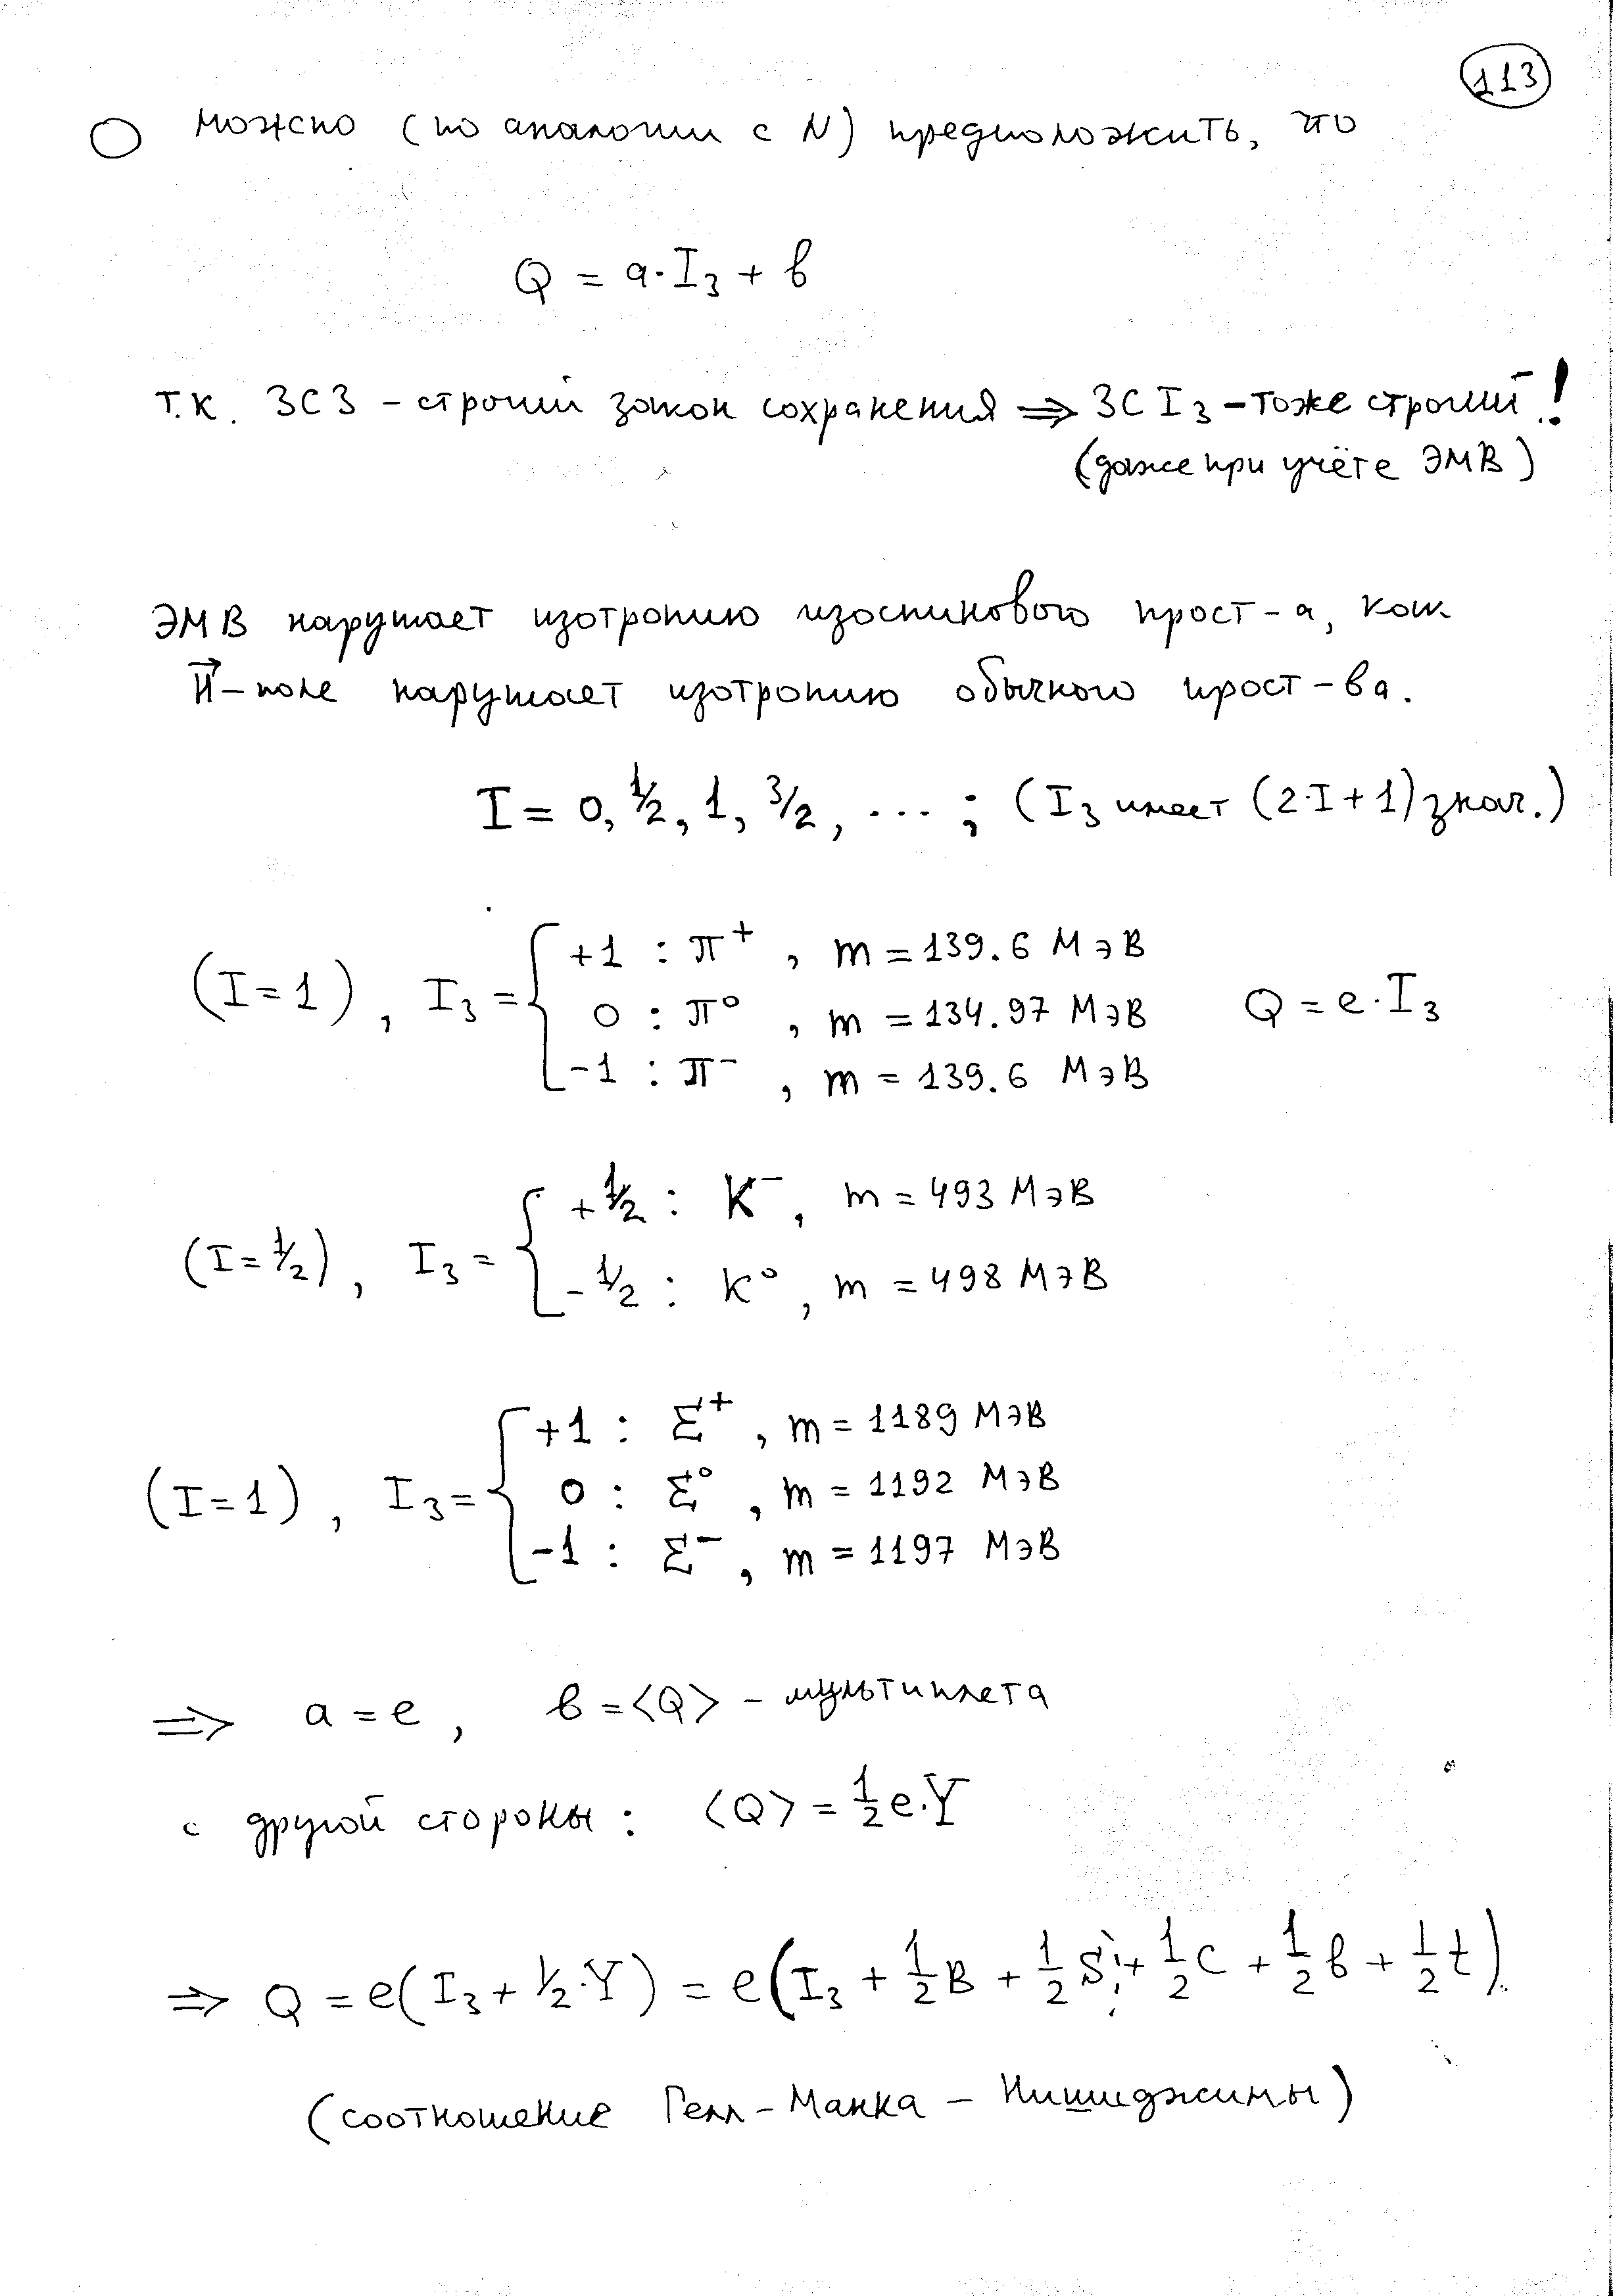 113
можно (по аналогии с N) предположить, что
Q = a·I₃ + b
т.к. ЗСЗ – строгий закон сохранения ⇒ ЗС I₃ – тоже строгий!
(даже при учёте ЭМВ)
ЭМВ нарушает изотропию изоспинового прост-а, как
H⃗-поле нарушает изотропию обычного прост-ва.
I = 0, 1/2, 1, 3/2, ... ; (I₃ имеет (2·I+1) знач.)
(I=1), I₃ = { +1 : π⁺, m = 139.6 МэВ
0 : π⁰, m = 134.97 МэВ Q = e·I₃
-1 : π⁻, m = 139.6 МэВ
(I=1/2), I₃ = { +1/2 : K⁻, m = 493 МэВ
-1/2 : K⁰, m = 498 МэВ
(I=1), I₃ = { +1 : Σ⁺, m = 1189 МэВ
0 : Σ⁰, m = 1192 МэВ
-1 : Σ⁻, m = 1197 МэВ
⇒ a = e, b = <Q> – мультиплета
с другой стороны: <Q> = 1/2 e·Y
⇒ Q = e(I₃ + 1/2·Y) = e(I₃ + 1/2 B + 1/2 S + 1/2 C + 1/2 b + 1/2 t)
(соотношение Гелл-Манна – Нишиджимы)